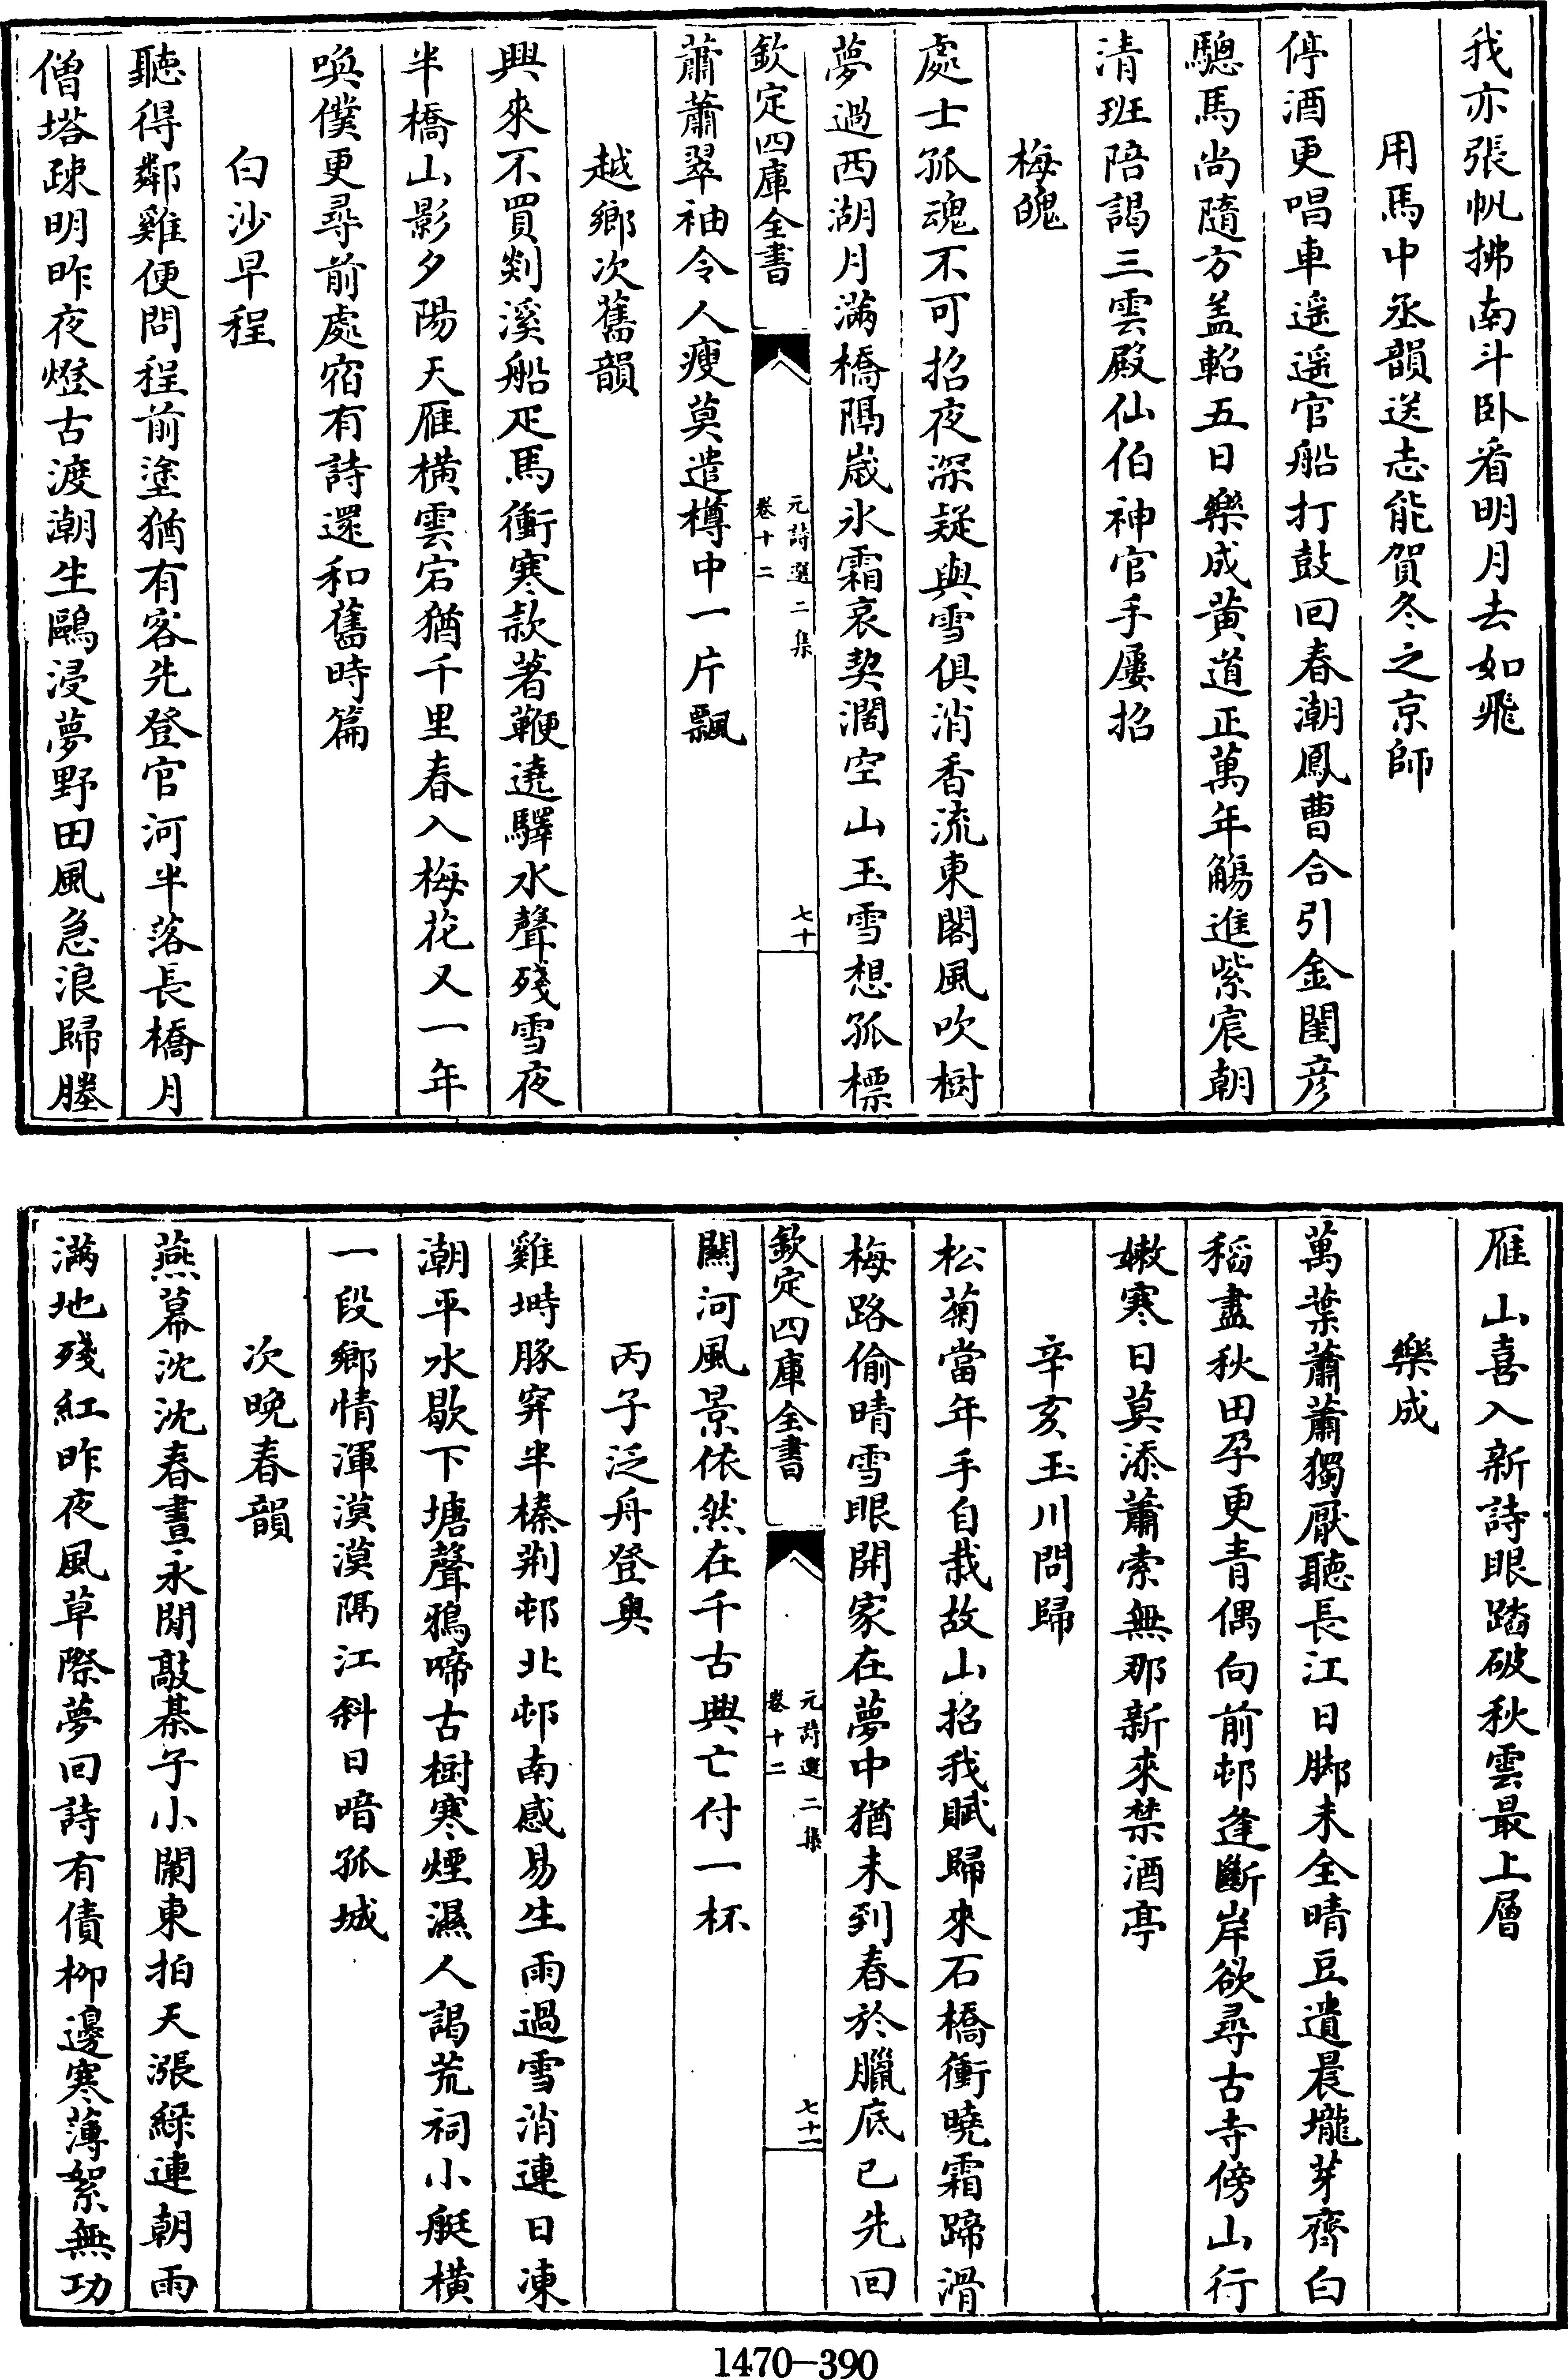 我亦張帆拂南斗卧看明月去如飛
用馬中丞韻送志能賀冬之京師
停酒更唱車遥遥官船打鼓回春潮鳳曹合引金閨彦
驄馬尚隨方盖軺五日樂成黄道正萬年觴進紫宸朝
清班陪謁三雲殿仙伯神官手屢招
梅魄
處士孤魂不可招夜深疑與雪俱消香流東閣風吹樹
夢過西湖月滿橋隅歲氷霜哀契濶空山玉雪想孤標
欽定四庫全書
元詩選二集
卷十二
七十
蕭蕭翠袖令人瘦莫遣樽中一片飄
越鄉次舊韻
興來不買剡溪船疋馬衝寒款著鞭遶驛水聲殘雪夜
半橋山影夕陽天雁横雲宕猶千里春入梅花又一年
喚僕更尋前處宿有詩還和舊時篇
白沙早程
聽得鄰雞便問程前塗猶有客先登官河半落長橋月
僧塔疎明昨夜燈古渡潮生鷗浸夢野田風急浪歸塍
雁山喜入新詩眼踏破秋雲最上層
樂成
萬葉蕭蕭獨厭聽長江日脚未全晴豆遺晨壠芽齊白
稻盡秋田孕更青偶向前邨逢斷岸欲尋古寺傍山行
嫩寒日莫添蕭索無那新來禁酒亭
辛亥玉川問歸
松菊當年手自栽故山招我賦歸來石橋衝曉霜蹄滑
梅路偷晴雪眼開家在夢中猶未到春於臘底已先回
欽定四庫全書
元詩選二集
卷十二
七十一
關河風景依然在千古興亡付一杯
丙子泛舟登奥
雞塒豚穽半榛荆邨北邨南感易生雨過雪消連日凍
潮平水歇下塘聲鴉啼古樹寒煙濕人謁荒祠小艇横
一段鄉情渾漠漠隅江斜日暗孤城
次晚春韻
燕幕沈沈春晝永閒敲棊子小闌東拍天漲緑連朝雨
滿地殘紅昨夜風草際夢回詩有債柳邊寒薄絮無功
1470—390